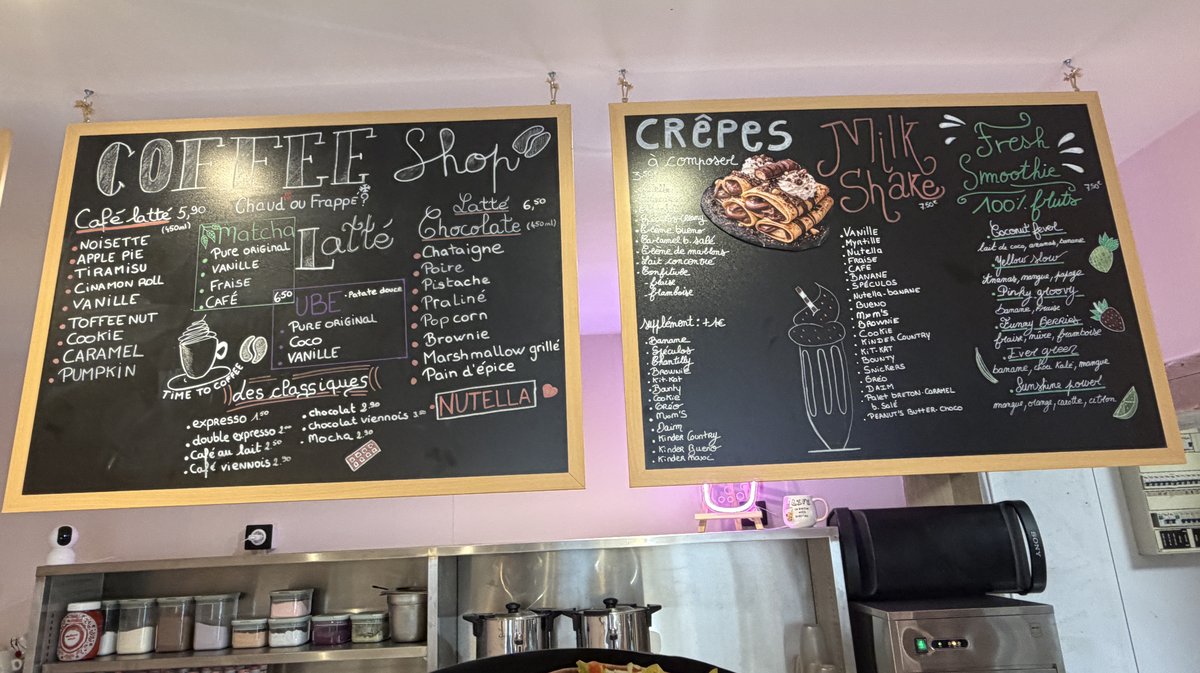 COFFEE Shop
Chaud ou Frappé?
Café latté 5,90
(450ml)
NOISETTE
APPLE PIE
TIRAMISU
CINAMON ROLL
VANILLE
TOFFEE NUT
COOKIE
CARAMEL
PUMPKIN
Latté
Matcha
PURE ORIGINAL
VANILLE
FRAISE
CAFÉ
6,50
UBE • Patate douce
PURE ORIGINAL
COCO
VANILLE
TIME TO COFFEE
Latté 6,50
Chocolate (450ml)
Chataigne
Poire
Pistache
Praliné
Pop corn
Brownie
Marshmallow grillé
Pain d'épice
NUTELLA
des classiques
expresso 1.50
double expresso 2.00
Café au lait 2.50
Café viennois 2.90
chocolat 2.90
chocolat viennois
Mocha 2.90
CRÊPES
à composer
Crème bueno
Caramel b. salé
Crème de marrons
Lait concentré
Confiture
fraise
framboise
supplément : +1€
Banane
Spéculos
Chantilly
BROWNIE
Kit-Kat
Bounty
Cookie
Oréo
M&M'S
Daim
Kinder Country
Kinder Bueno
Kinder Maxi
Milk
Shake
7.50€
VANILLE
Myrtille
Nutella
FRAISE
CAFÉ
BANANE
SPÉCULOS
Nutella-banane
BUENO
M&M'S
BROWNIE
COOKIE
KINDER COUNTRY
KIT-KAT
BOUNTY
SNICKERS
ORÉO
DAIM
Palet BRETON-CARAMEL
b. Salé
PEANUT'S BUTTER-CHOCO
Fresh
Smoothie
7.50€
100% fruits
Coconut fever
lait de coco, ananas, banane
Yellow slow
Ananas, mangue, papaye
Pinky groovy
banane, fraise
Funny BERRIES
fraise, mûre, framboise
Ever green
banane, chou kale, mangue
Sunshine power
mangue, orange, carotte, citron
SONY